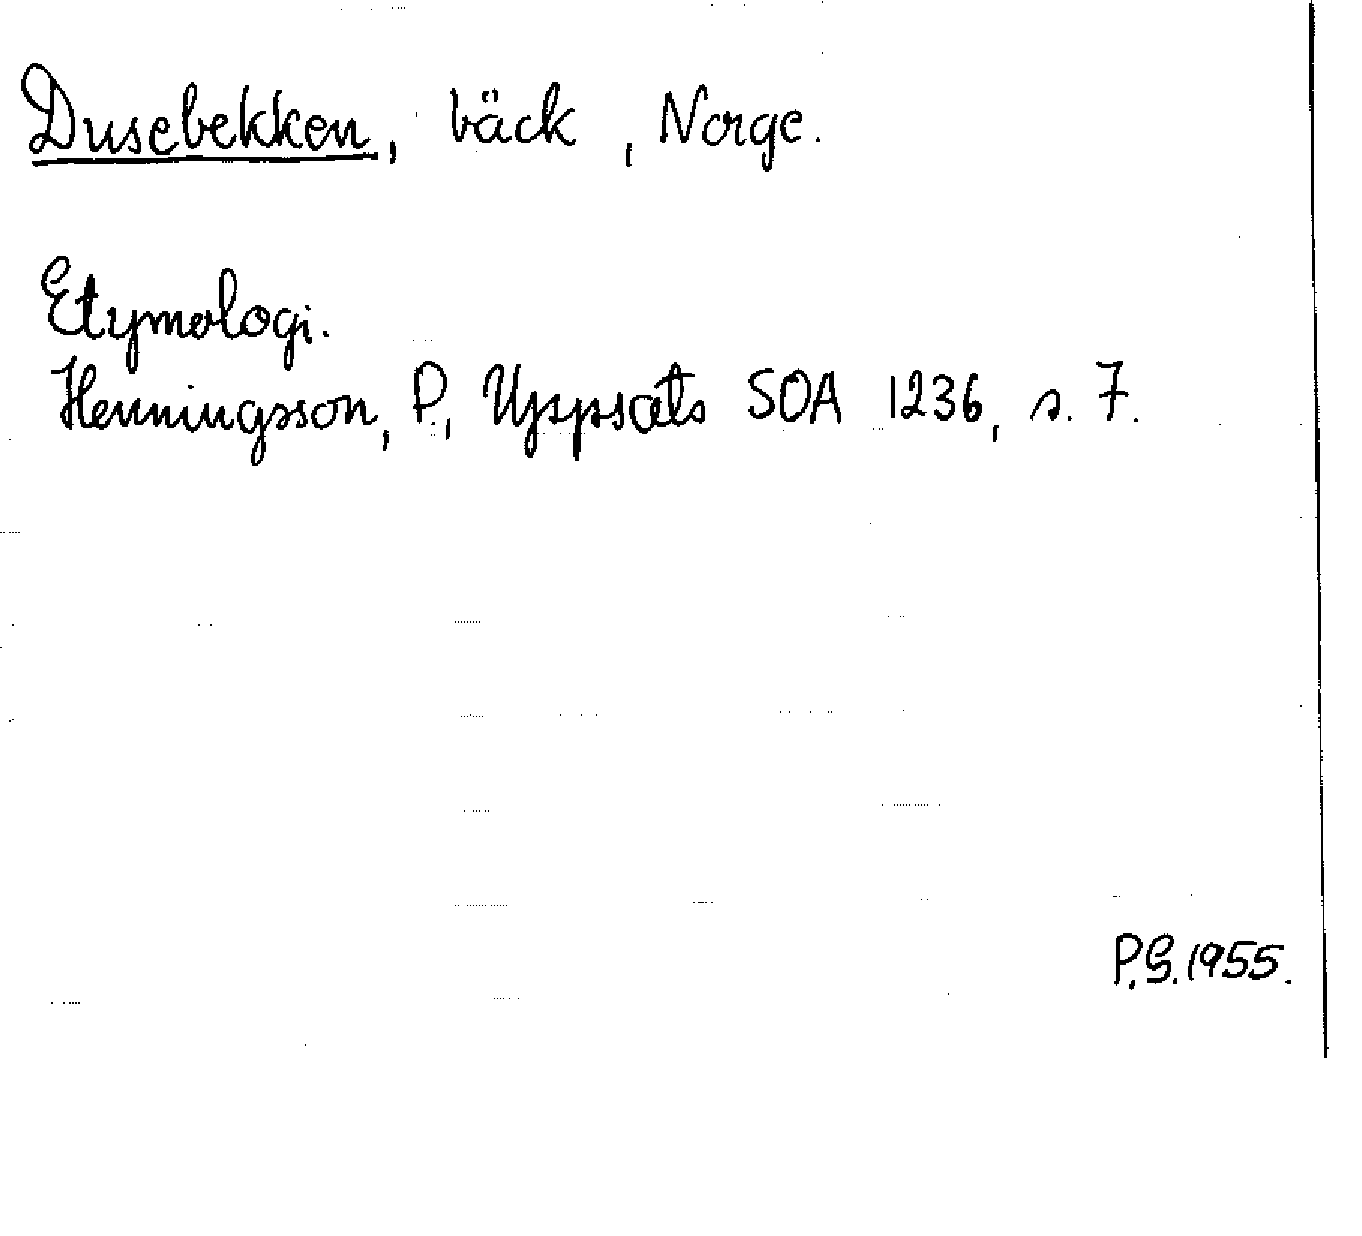 Dusebekken, bäck, Norge.
Etymologi.
Henningsson, P., Uppsats SOA 1236, s. 7.
P.G. 1955.